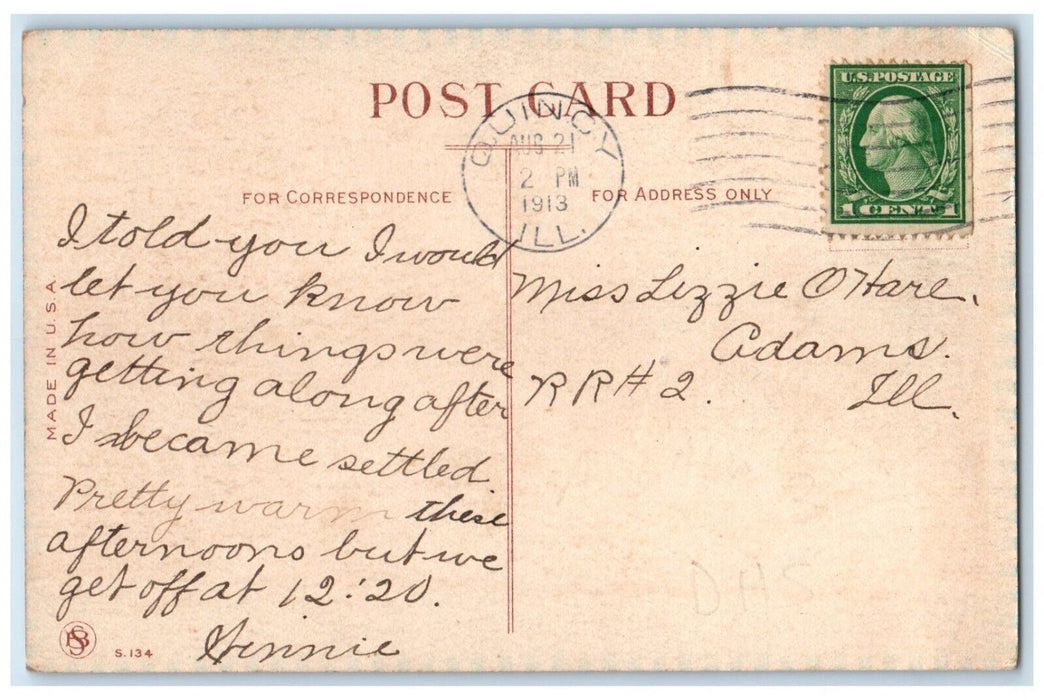 POST CARD
QUINCY
AUG 21
2 PM
1913
ILL.
U.S. POSTAGE
1 CENT 1
FOR CORRESPONDENCE
FOR ADDRESS ONLY
I told you I would
let you know
how things were
getting along after
I became settled.
Pretty warm these
afternoons but we
get off at 12:20.
Miss Lizzie O'Hare.
Adams.
RR#2.
Ill.
MADE IN U.S.A
S. 134